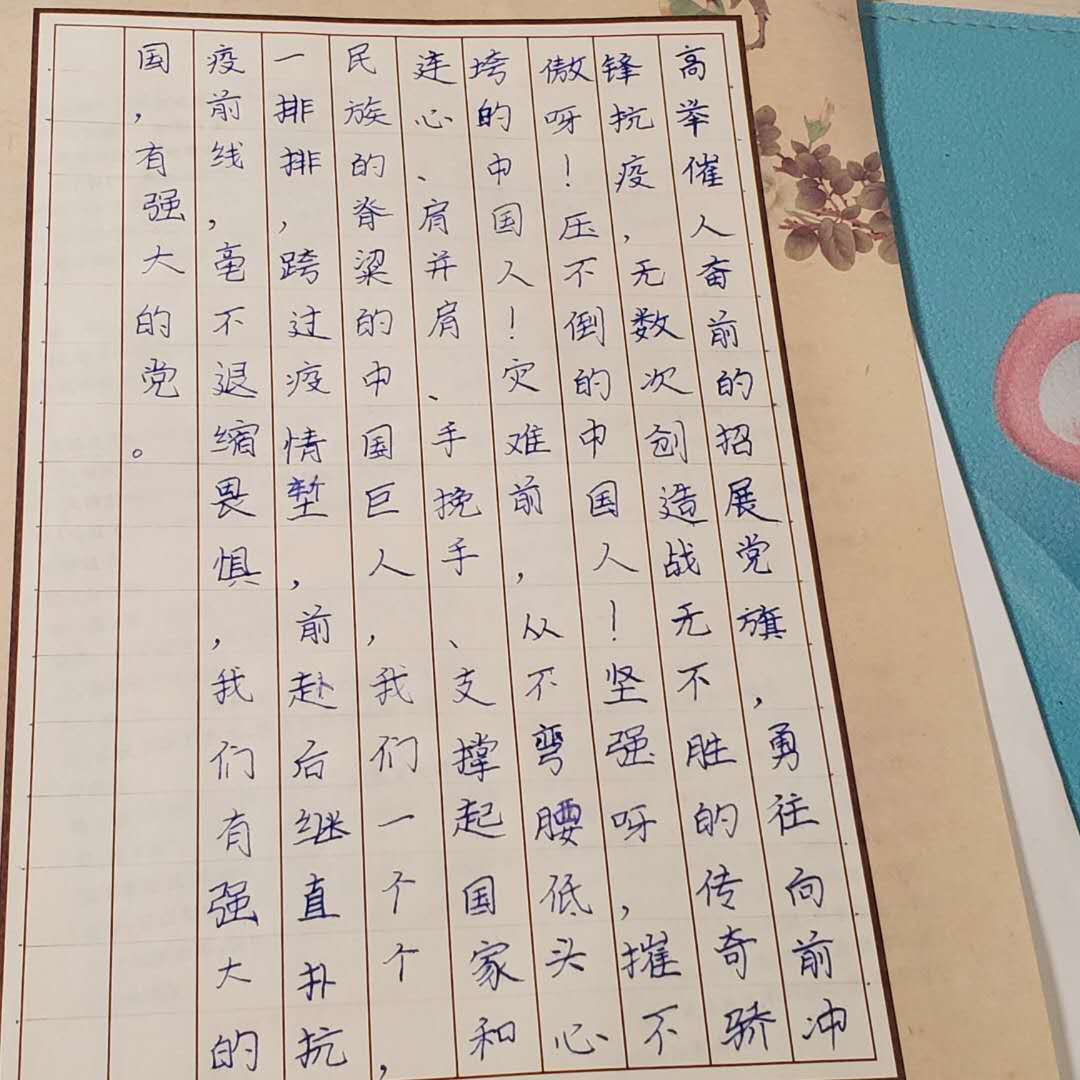 高举催人奋前的招展党旗，勇往向前冲
锋抗疫，无数次创造战无不胜的传奇骄
傲呀！压不倒的中国人！坚强呀，摧不
垮的中国人！灾难前，从不弯腰低头心
连心、肩并肩、手挽手、支撑起国家和
民族的脊梁的中国巨人，我们一个个，
一排排，跨过疫情堑，前赴后继直扑抗
疫前线，毫不退缩畏惧，我们有强大的
国，有强大的党。